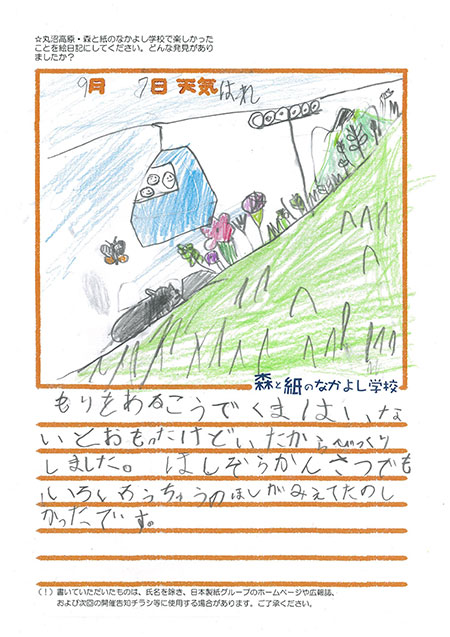 ☆丸沼高原・森と紙のなかよし学校で楽しかった
ことを絵日記にしてください。どんな発見があり
ましたか？
9月 7日 天気 はれ
森と紙のなかよし学校
もりをあるこうでくまはいな
いとおもったけどいたからびっくり
しました。 ほしぞらかんさつでも
いろいろうちゅうのほしがみえてたのし
かったです。
（！）書いていただいたものは、氏名を除き、日本製紙グループのホームページや広報誌、
および次回の開催告知チラシ等に使用する場合があります。ご了承ください。